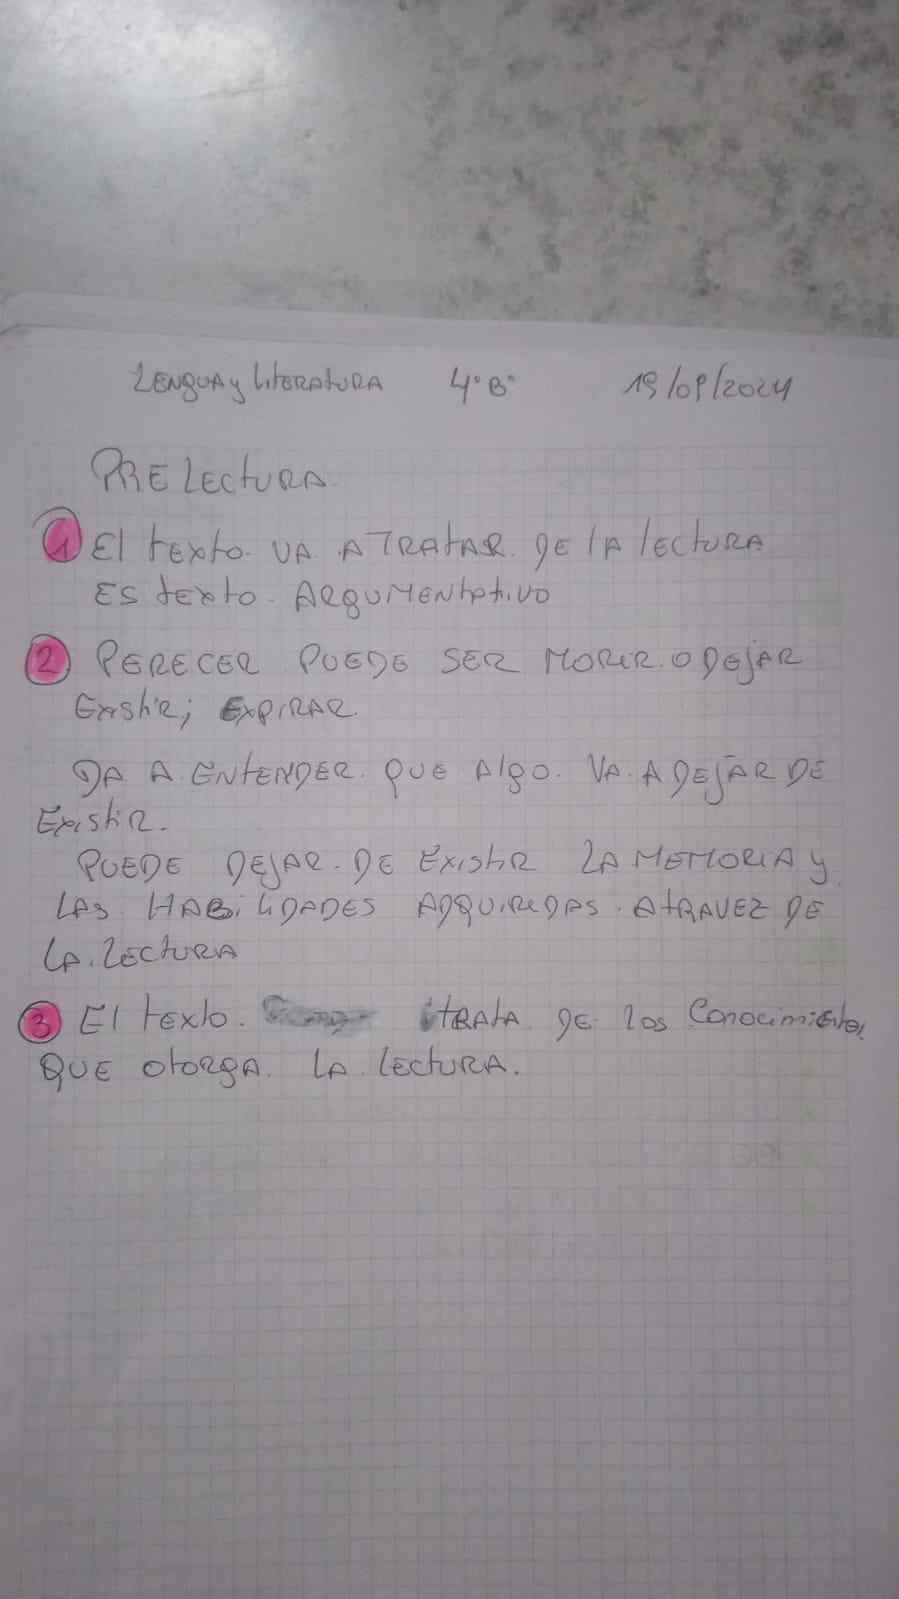 Lengua y Literatura 4° B° 19/09/2024
PRELECTURA.
1 El texto. VA A TRATAR. DE LA lECTURA
ES texto. ARGUMENtAtiVO
2 PERECER PUEDE SER MORIR. O DEJAR
Existir; EXPIRAR.
DA A ENTENDER. QUE Algo. VA. A DEJAR DE
Existir.
PUEDE DEJAR. DE Existir LA MEMORIA y
LAS HABILIDADES ADQUIREDAS. ATRAVEZ DE
LA. LECTURA
3 El texto. tRATA DE los Conocimientos
QUE otorga. LA. LECTURA.